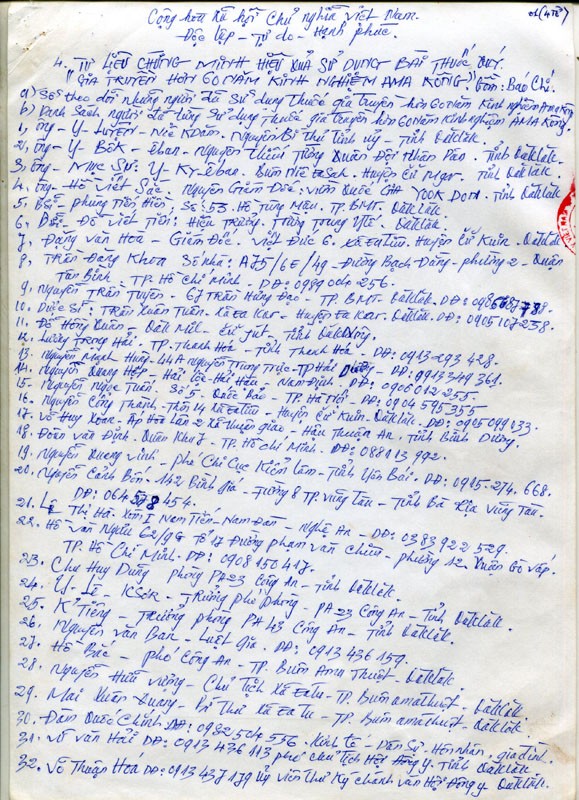 Cộng hòa xã hội Chủ nghĩa Việt Nam. 01 (4 Tờ)
Độc lập - Tự do - Hạnh phúc.
4. TƯ LIỆU CHỨNG MINH HIỆU QUẢ SỬ DỤNG BÀI THUỐC QUÝ.
"GIA TRUYỀN HƠN 60 NĂM KINH NGHIỆM AMA KÔNG" Gồm: Báo Chí.
a) Sổ theo dõi những người đã sử dụng thuốc gia truyền hơn 60 năm kinh nghiệm Ama Kông
b) Danh sách người đã từng sử dụng thuốc gia truyền hơn 60 năm kinh nghiệm AMA KÔNG.
1, Ông - Y - LUYỆN - Niê KDăm. Nguyên Bí thư tỉnh ủy - Tỉnh Đăklăk.
2, Ông - Y BÔK - êban - Nguyên Thiếu Tướng Quân Đội Nhân Dân. Tỉnh Đăklăk.
3, Ông - Mục Sư: Y - Ky - êban. Huyện Cư Mgar. Tỉnh Đăklăk.
4, Ông - Hồ Viết Sắc. Nguyên Giám Đốc: Vườn Quốc Gia YOOK DON. Tỉnh Đăklăk
5. Phùng Tiến Hiền. Số: 53. Hồ Tùng Mậu. TP. BMT. Đăklăk.
6. Đỗ Viết Tiến: Hiệu Trưởng. Trường Trung Y tế. Đăklăk.
7. Đặng Văn Hoà - Giám Đốc. Việt Đức 6. Xã Ea tiêu. Huyện Cư Kuin. Đăklăk
8. Trần Đăng Khoa Số nhà: A75/6E/49 - Đường Bạch Đằng - phường 2 - Quận
Tân Bình. TP. Hồ Chí Minh - 0989 004 256.
9. Nguyễn Trần Tuyên. 67 Trần Hưng Đạo - TP. BMT. Đăklăk. DĐ:
10. Dược Sĩ: Trần Xuân Tuân. Xã Ea Kar - Huyện Ea Kar. Đăklăk. DĐ: 0905 107 258.
11. Đỗ Hồng Xuân. Đăk Mil. Cư Jút - Tỉnh Đăk Nông.
12. Lương Trọng Hải. TP. Thanh Hóa - Tỉnh Thanh Hóa. DĐ: 0913 293 428.
13. Nguyễn Mạnh Hùng. 44A Nguyễn Trung Trực - TP Hải Dương - DĐ: 0913 349 361.
14. Nguyễn Quang Hợp - Hải Lộc - Hải Hậu - Nam Định. DĐ: 0906 012 255.
15. Nguyễn Ngọc Tuấn. Số 5 Quốc Bảo - TP. Hà Nội. DĐ: 0904 595 355
16. Nguyễn Công Thành - Thôn 14 Xã Ea tiêu - Huyện Cư Kuin - Đăklăk - DĐ: 0905 099 033.
17. Võ Huy Xoan. Ấp Hòa Lân 2 Xã Thuận giao - Thuận An. Tỉnh Bình Dương.
18. Đoàn Văn Định. Quân Khu 7. TP. Hồ Chí Minh. DĐ: 088 13 992.
19. Nguyễn Quang Vinh - phó Chi Cục Kiểm Lâm - Tỉnh Yên Bái. DĐ: 0915 - 274. 668.
20. Nguyễn Cảnh Bốn. 142 Bình Giã, - Phường 8 TP. Vũng Tàu - Tỉnh Bà Rịa Vũng Tàu.
DĐ: 064 578 454.
21. Lê Thị Hà. Xóm I Nam Tiến - Nam Đàn - Nghệ An - DĐ: 0383 922 529.
22. Hồ Văn Nghĩa 62/9G Tổ 17 Đường Phạm Văn Chiêu - phường 12. Quận Gò Vấp.
TP. Hồ Chí Minh. DĐ: 0908 150 417.
23. Chu Huy Dũng phòng PA23 Công An - Tỉnh Đăklăk.
24. Y - Lê - KSơR. - Trưởng phó phòng - PA 23 Công An - Tỉnh Đăklăk.
25. K' Tiếng - Trưởng phòng PA 43 Công An - Tỉnh Đăklăk.
26. Nguyễn Văn Ban - Luật gia. DĐ: 0913 436 159.
27. Hồ Bắc - phó Công An - TP. Buôn Ama Thuột - Đăklăk.
28. Nguyễn Hữu Vượng - Chủ Tịch Xã Ea tu - TP. Buôn ama thuột. Đăklăk.
29. Mai Xuân Quảng. Bí Thư Xã Ea tu - TP. Buôn ama thuột. Đăklăk.
30. Đàm Quốc Chính. DĐ: 0982 504 556. Kinh tế - Dân Sự. Hôn nhân. gia đình.
31. Vũ Văn Hải DĐ: 0913 436 113 phó chủ tịch Hội Đông y. Tỉnh Đăklăk
32. Võ Thuận Hoá DĐ: 0913 437 179 Ủy viên thư Ký chánh văn Hội Đông y Đăklăk.